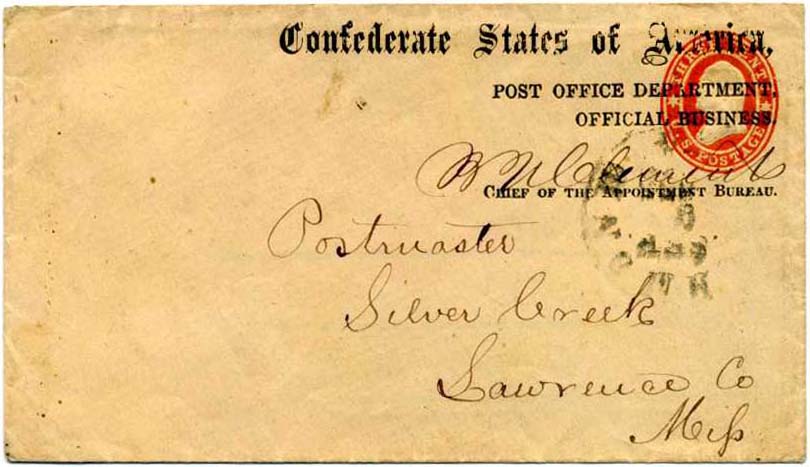 Confederate States of America,
THREE CENTS
U.S. POSTAGE
POST OFFICE DEPARTMENT,
OFFICIAL BUSINESS.
B N Clements
CHIEF OF THE APPOINTMENT BUREAU.
Postmaster
Silver Creek
Lawrence Co
Miss